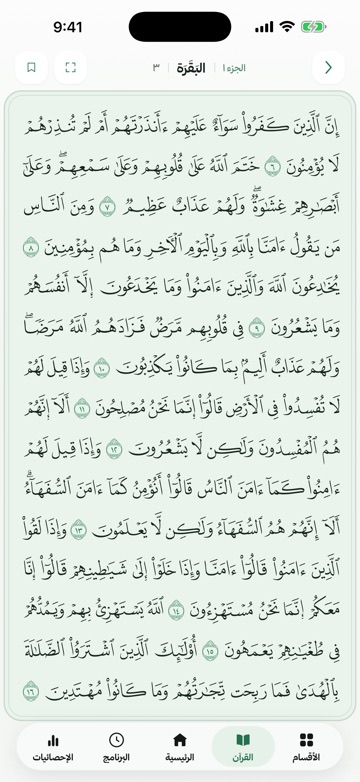 9:41
الجزء ١ | البَقَرَة | ٣
إِنَّ ٱلَّذِينَ كَفَرُوا۟ سَوَآءٌ عَلَيْهِمْ ءَأَنذَرْتَهُمْ أَمْ لَمْ تُنذِرْهُمْ
لَا يُؤْمِنُونَ ٦ خَتَمَ ٱللَّهُ عَلَىٰ قُلُوبِهِمْ وَعَلَىٰ سَمْعِهِمْ ۖ وَعَلَىٰٓ
أَبْصَٰرِهِمْ غِشَٰوَةٌ ۖ وَلَهُمْ عَذَابٌ عَظِيمٌ ٧ وَمِنَ ٱلنَّاسِ
مَن يَقُولُ ءَامَنَّا بِٱللَّهِ وَبِٱلْيَوْمِ ٱلْءَاخِرِ وَمَا هُم بِمُؤْمِنِينَ ٨
يُخَٰدِعُونَ ٱللَّهَ وَٱلَّذِينَ ءَامَنُوا۟ وَمَا يَخْدَعُونَ إِلَّآ أَنفُسَهُمْ
وَمَا يَشْعُرُونَ ٩ فِى قُلُوبِهِم مَّرَضٌ فَزَادَهُمُ ٱللَّهُ مَرَضًا ۖ
وَلَهُمْ عَذَابٌ أَلِيمٌۢ بِمَا كَانُوا۟ يَكْذِبُونَ ١٠ وَإِذَا قِيلَ لَهُمْ
لَا تُفْسِدُوا۟ فِى ٱلْأَرْضِ قَالُوٓا۟ إِنَّمَا نَحْنُ مُصْلِحُونَ ١١ أَلَآ إِنَّهُمْ
هُمُ ٱلْمُفْسِدُونَ وَلَٰكِن لَّا يَشْعُرُونَ ١٢ وَإِذَا قِيلَ لَهُمْ
ءَامِنُوا۟ كَمَآ ءَامَنَ ٱلنَّاسُ قَالُوٓا۟ أَنُؤْمِنُ كَمَآ ءَامَنَ ٱلسُّفَهَآءُ ۗ
أَلَآ إِنَّهُمْ هُمُ ٱلسُّفَهَآءُ وَلَٰكِن لَّا يَعْلَمُونَ ١٣ وَإِذَا لَقُوا۟
ٱلَّذِينَ ءَامَنُوا۟ قَالُوٓا۟ ءَامَنَّا وَإِذَا خَلَوْا۟ إِلَىٰ شَيَٰطِينِهِمْ قَالُوٓا۟ إِنَّا
مَعَكُمْ إِنَّمَا نَحْنُ مُسْتَهْزِءُونَ ١٤ ٱللَّهُ يَسْتَهْزِئُ بِهِمْ وَيَمُدُّهُمْ
فِى طُغْيَٰنِهِمْ يَعْمَهُونَ ١٥ أُو۟لَٰٓئِكَ ٱلَّذِينَ ٱشْتَرَوُا۟ ٱلضَّلَٰلَةَ
بِٱلْهُدَىٰ فَمَا رَبِحَت تِّجَٰرَتُهُمْ وَمَا كَانُوا۟ مُهْتَدِينَ ١٦
الأقسام القرآن الرئيسية البرنامج الإحصائيات